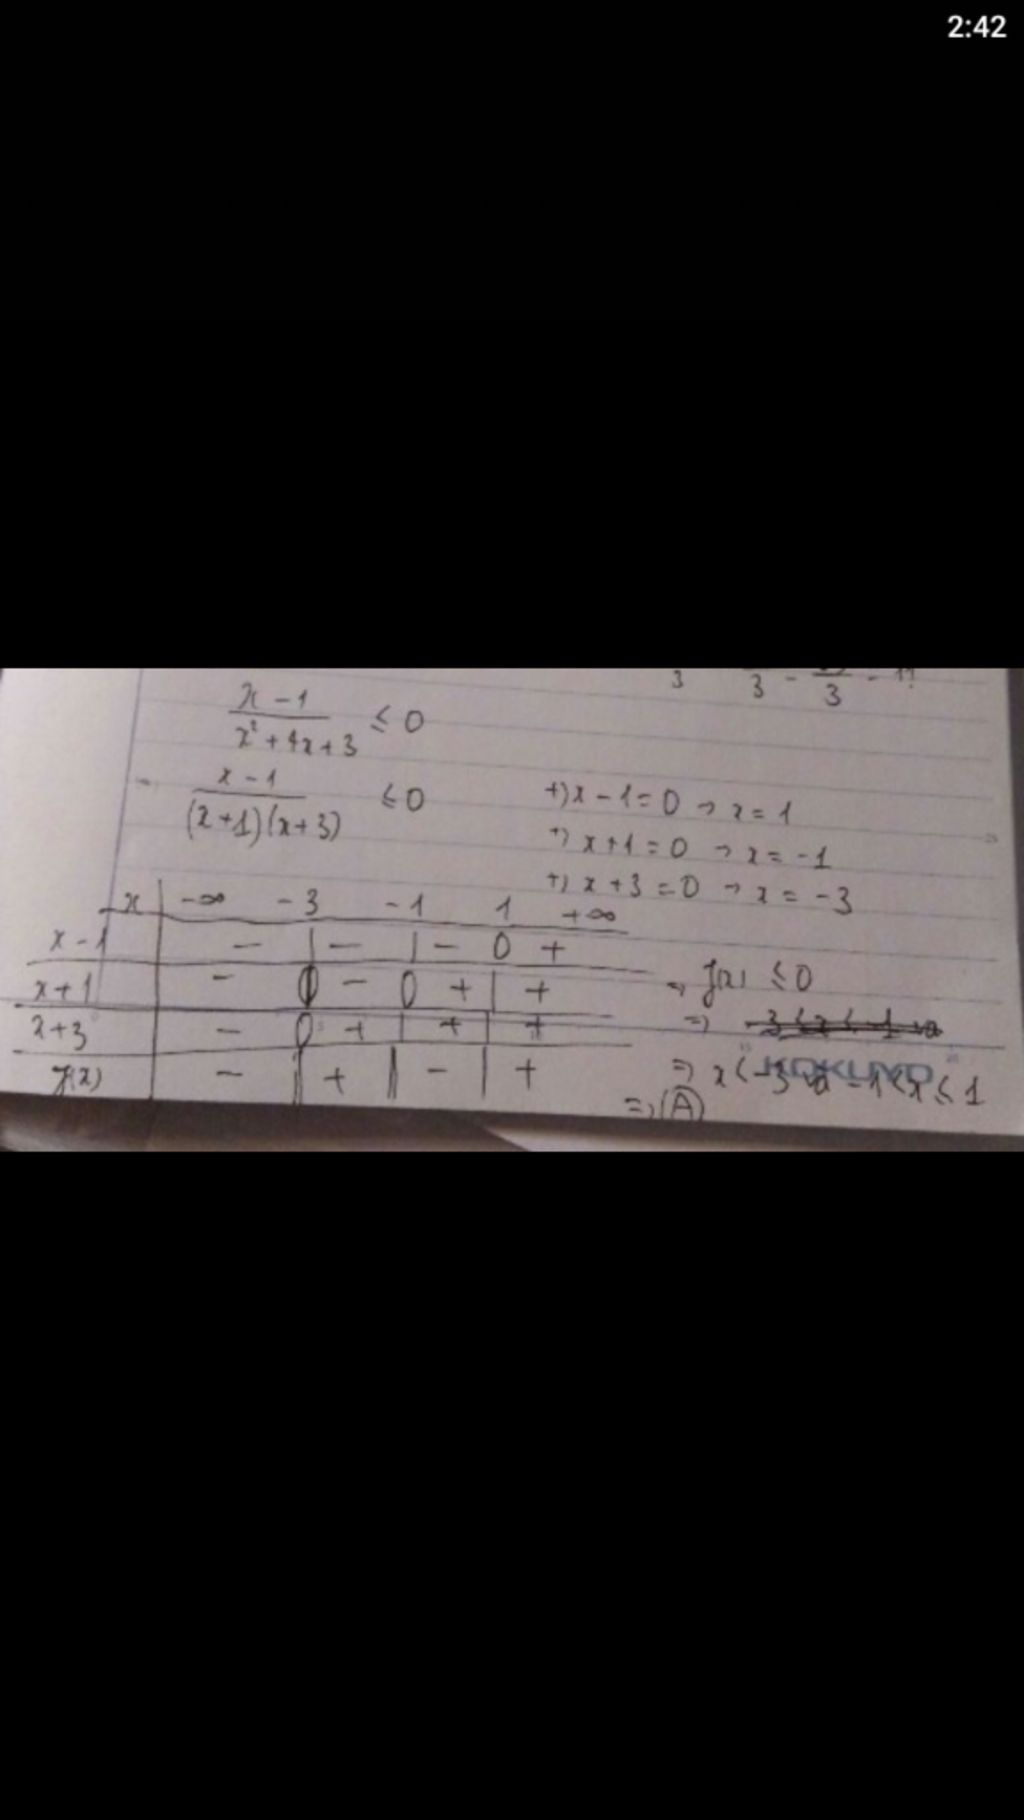 2:42
3 3 - 3
x - 1 / x² + 4x + 3 ≤ 0
x - 1 / (x+1)(x+3) ≤ 0
+) x - 1 = 0 → x = 1
+) x + 1 = 0 → x = -1
+) x + 3 = 0 → x = -3
x | -∞ -3 -1 1 +∞
x - 1 | - | - | - 0 +
x + 1 | - | - 0 + | +
x + 3 | - 0 + | + | +
f(x) | - || + || - | +
→ f(x) ≤ 0
⇒
⇒ x < -3 và -1 < x ≤ 1
KOKUYO
⇒ (A)